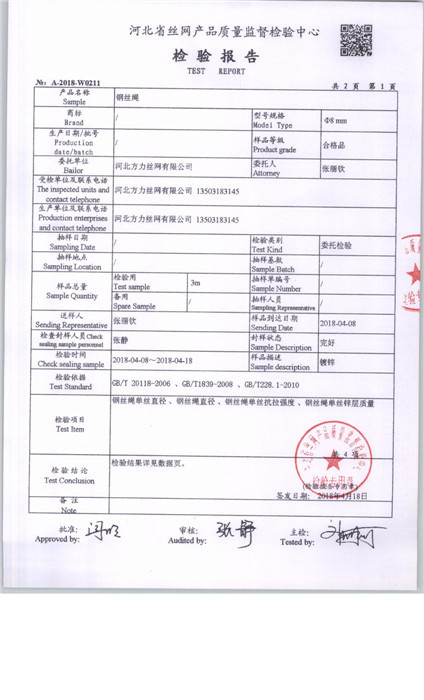 河北省丝网产品质量监督检验中心
检验报告
TEST REPORT
№: A-2018-W0211 共 2 页 第 1 页
产品名称 钢丝绳
Sample
商标 / 型号规格 Φ8 mm
Brand Model Type
生产日期/批号 / 样品等级 合格品
Production Product grade
date/batch
委托单位 河北方力丝网有限公司 委托人 张丽钦
Bailor Attorney
受检单位及联系电话
The inspected units and 河北方力丝网有限公司 13503183145
contact telephone
生产单位及联系电话
Production enterprises 河北方力丝网有限公司 13503183145
and contact telephone
抽样日期 / 检验类别 委托检验
Sampling Date Test Kind
抽样地点 / 抽样基数 /
Sampling Location Sample Batch
样品总量 检验用 3m 抽样单编号 /
Sample Quantity Test sample Sample Number
备用 / 抽样人员 /
Spare Sample Sampling Representative
送样人 张丽钦 样品到达日期 2018-04-08
Sending Representative Sending Date
检查封样人员Check 张静 封样状态 完好
sealing sample personnel Sample Description
检验时间 2018-04-08～2018-04-18 样品描述 镀锌
Check sealing sample Sample description
检验依据 GB/T 20118-2006 、GB/T1839-2008 、GB/T228.1-2010
Test Standard
检验项目 钢丝绳单丝直径、钢丝绳直径、钢丝绳单丝抗拉强度、钢丝绳单丝锌层质量
Test Item
共 4 项
检验结论 检验结果详见数据页。
Test Conclusion
签发日期: 2018年4月18日
备 注
Note
批准: 审核: 张静 主检:
Approved by: Audited by: Tested by: